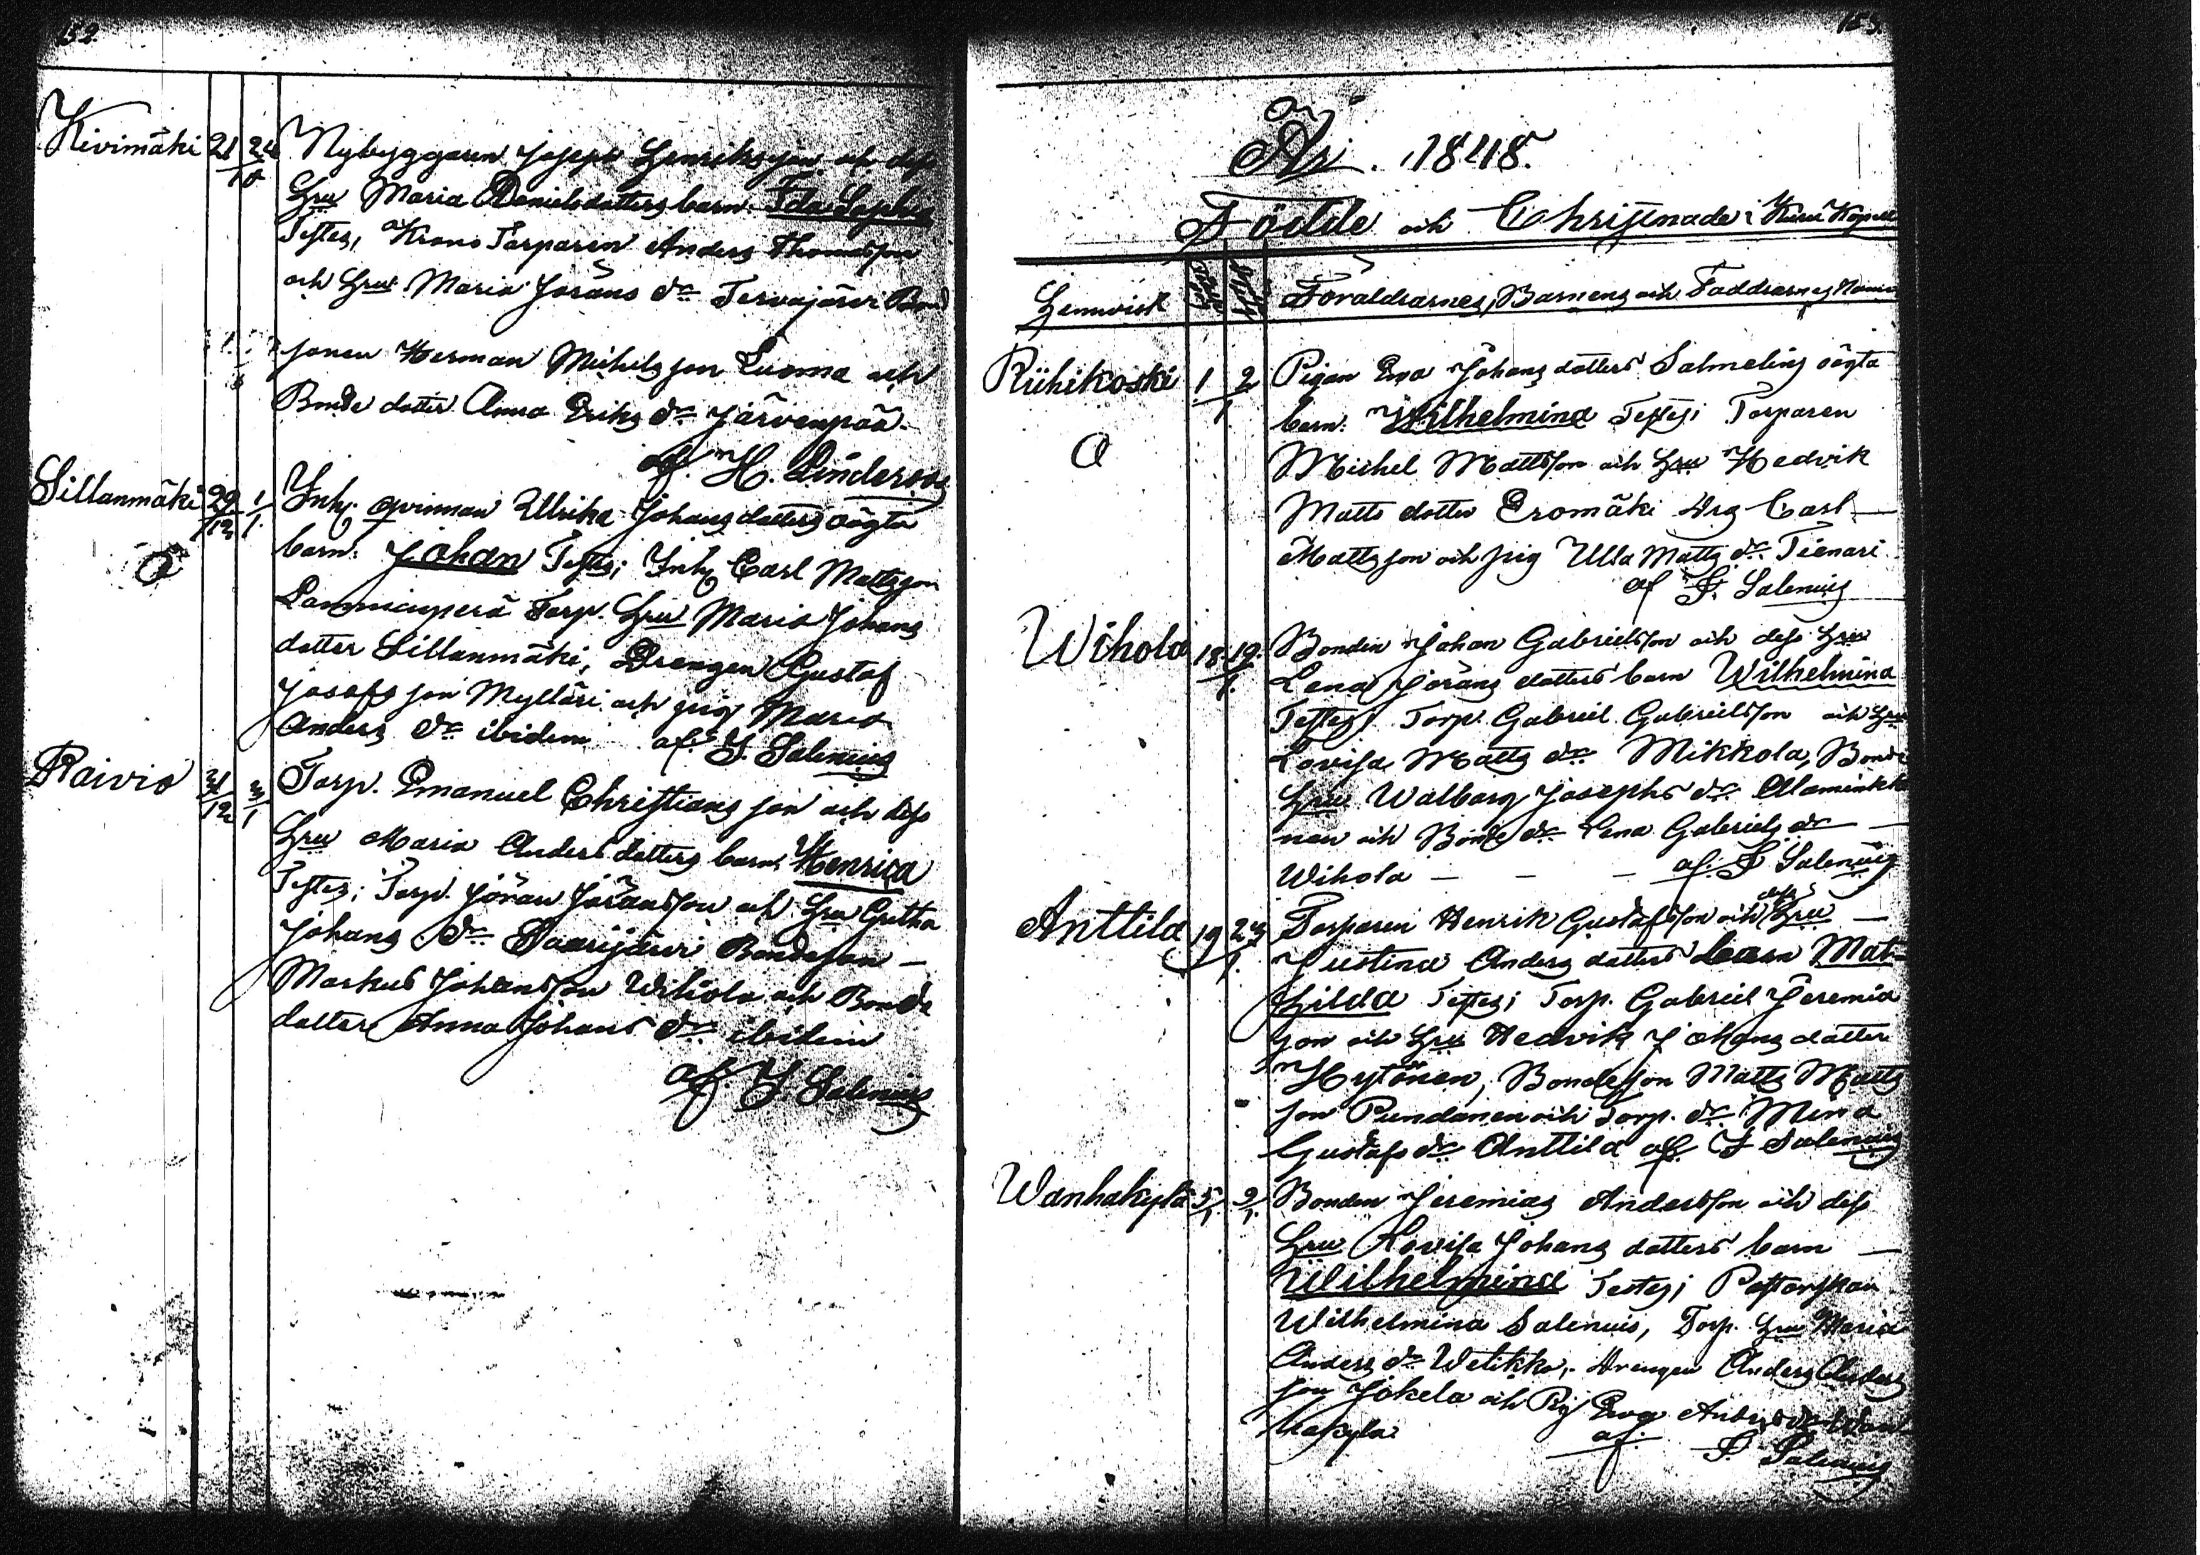 152.
Kivimäki 21 24/10 Nybyggaren Joseph Henriksson och dess
Hru Maria Danielsdotters barn: Ida Sophia
Testes, Krono Torparen Anders Thomasson
och Hru Maria Jörans dr Tervajärvi Bond
sonen Herman Michelsson Luoma och
Bonde dotter Anna Eriks dr Järvenpää
af H. Linderoos
Sillanmäki 29/12 1/1 Inh. qvinnan Ulrika Johans dotters oägta
barn: Johan Testes; Inh Carl Mattsson
Torp. Hru Maria Johans
dotter Sillanmäki, Drengen Gustaf
Josefs son Mylläri och pig Maria
Anders dr ibidem af J. Salenius
Raivio 31/12 3/1 Torp. Emanuel Christians son och dess
Hru Maria Anders dotters barn: Henrica
Testes; Torp. Jöran Jöransson och Hru Gretha
Johans dr Saarijärvi Bondeson —
Markus Johansson Wihola och Bonde
dotter Anna Johans dr ibidem
af J. Salenius
153.
År 1848.
Födde och Christnade i Kuru Kapell
Hemvist Föräldrarnes, Barnens och Faddrarnes Namn
Riihikoski 1 2/1 Pigan Eva Johans dotters Salmelins oägta
barn: Wilhelmina Testes; Torparen
Michel Mattsson och Hru Hedvik
Matts dotter Eromäki Drg Carl —
Mattsson och pig Ulla Matts dr Tienari
af J. Salenius
Wihola 18 19/1. Bonden Johan Gabrielsson och dess Hru
Lena Jörans dotters barn Wilhelmina
Testes; Torp. Gabriel Gabrielsson och Hru
Lovisa Matts dr Mikkola, Bonde
Hru Walborg Josephs dr Alaminkki
nen och Bonde dr Lena Gabriels dr —
Wihola — — — af J Salenius
Anttila 19 23/1. Torparen Henrik Gustafsson och dess Hru —
Justina Anders dotters barn Mat-
hilda Testes; Torp. Gabriel Jeremia
son och Hru Hedvik Johans dotter
Hytönen, Bondesson Matts Matts
son Pundanen och Torp. dr Mina
Gustafs dr Anttila af J Salenius
Wanhakylä 5/1. 9/1. Bonden Jeremias Andersson och dess
Hru Lovisa Johans dotters barn —
Wilhelmina Testes; Pastorskan
Wilhelmina Salenius, Torp. Hru Maria
Anders dr Wetikko, Drengen Anders Anders
son Jokela och Pig Eva Anders dr Wan-
hakylä. af J. Salenius